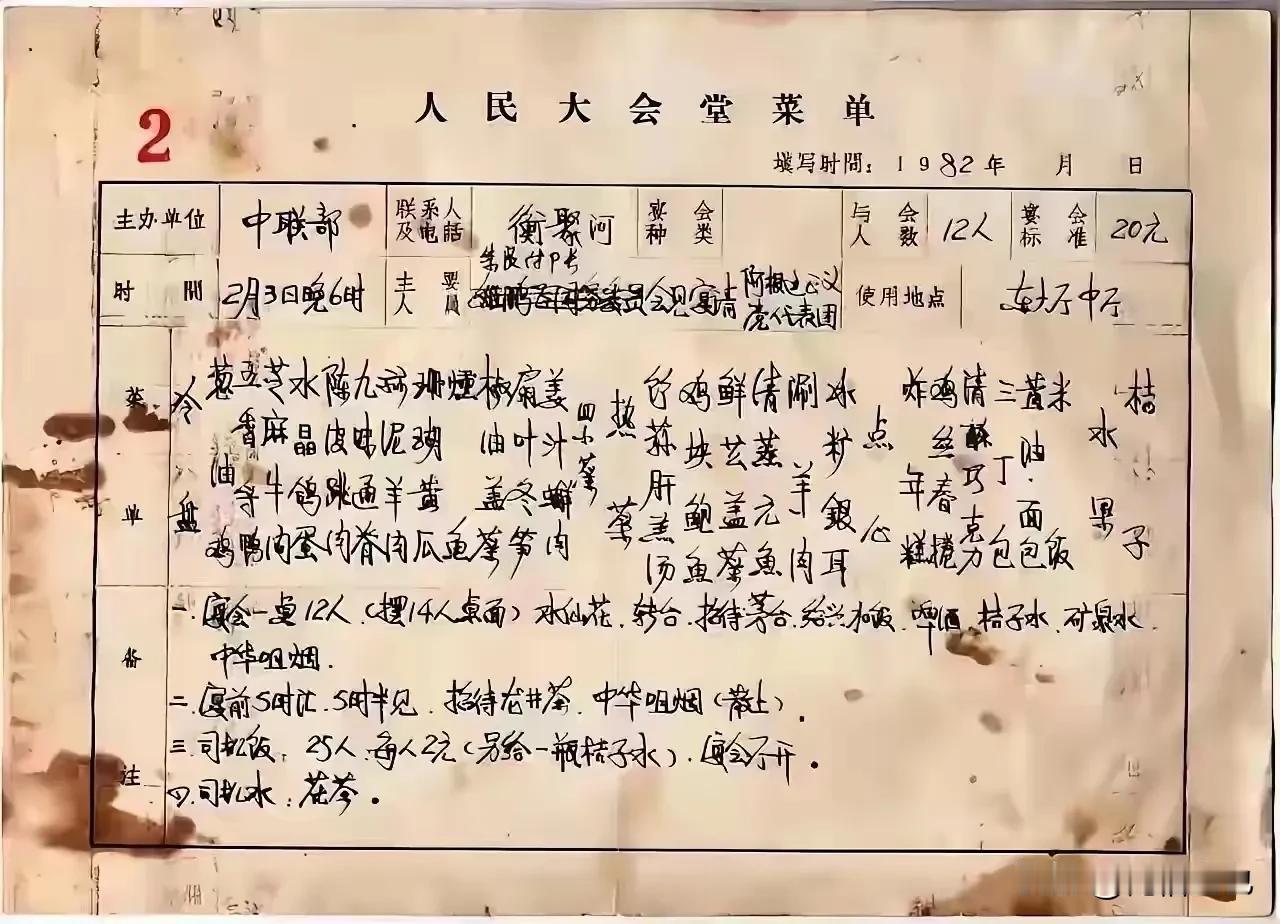 2
人民大会堂菜单
填写时間：1982年 月 日
主办单位 中联部 联系人及电話 衡聚河 宴会种类 与会人数 12人 宴会标准 20元
时間 2月3日晚6时 主要人員 会见宴请 党代表团 使用地点 东大厅中厅
菜单
冷盘
葱油鸡
五香鸭
芝麻牛肉
水晶鸽蛋
陈皮跳肉
九味通脊
羊肉
珊瑚黄瓜
燻鱼
椒油盖菜
扇叶冬笋
姜汁蟹肉
四小菜
热菜
竹荪肝羔汤
鸡块鲍鱼
鲜芸盖菜
清蒸元鱼
涮羊肉
冰籽銀耳
点心
炸年糕
鸡丝春捲
清酥巧克力
三丁包
黄油面包
米饭
水果
桔子
备注
一、宴会一桌12人（摆14人桌面）水仙花、转台、招待茅台、绍兴、啤酒、桔子水、矿泉水、
中华咀烟.
二、宴前5时汇、5时半见、招待龙井茶、中华咀烟（散上）.
三、司机饭：25人、每人2元（另给一瓶桔子水）、宴会厅开。
四、司机水：花茶。